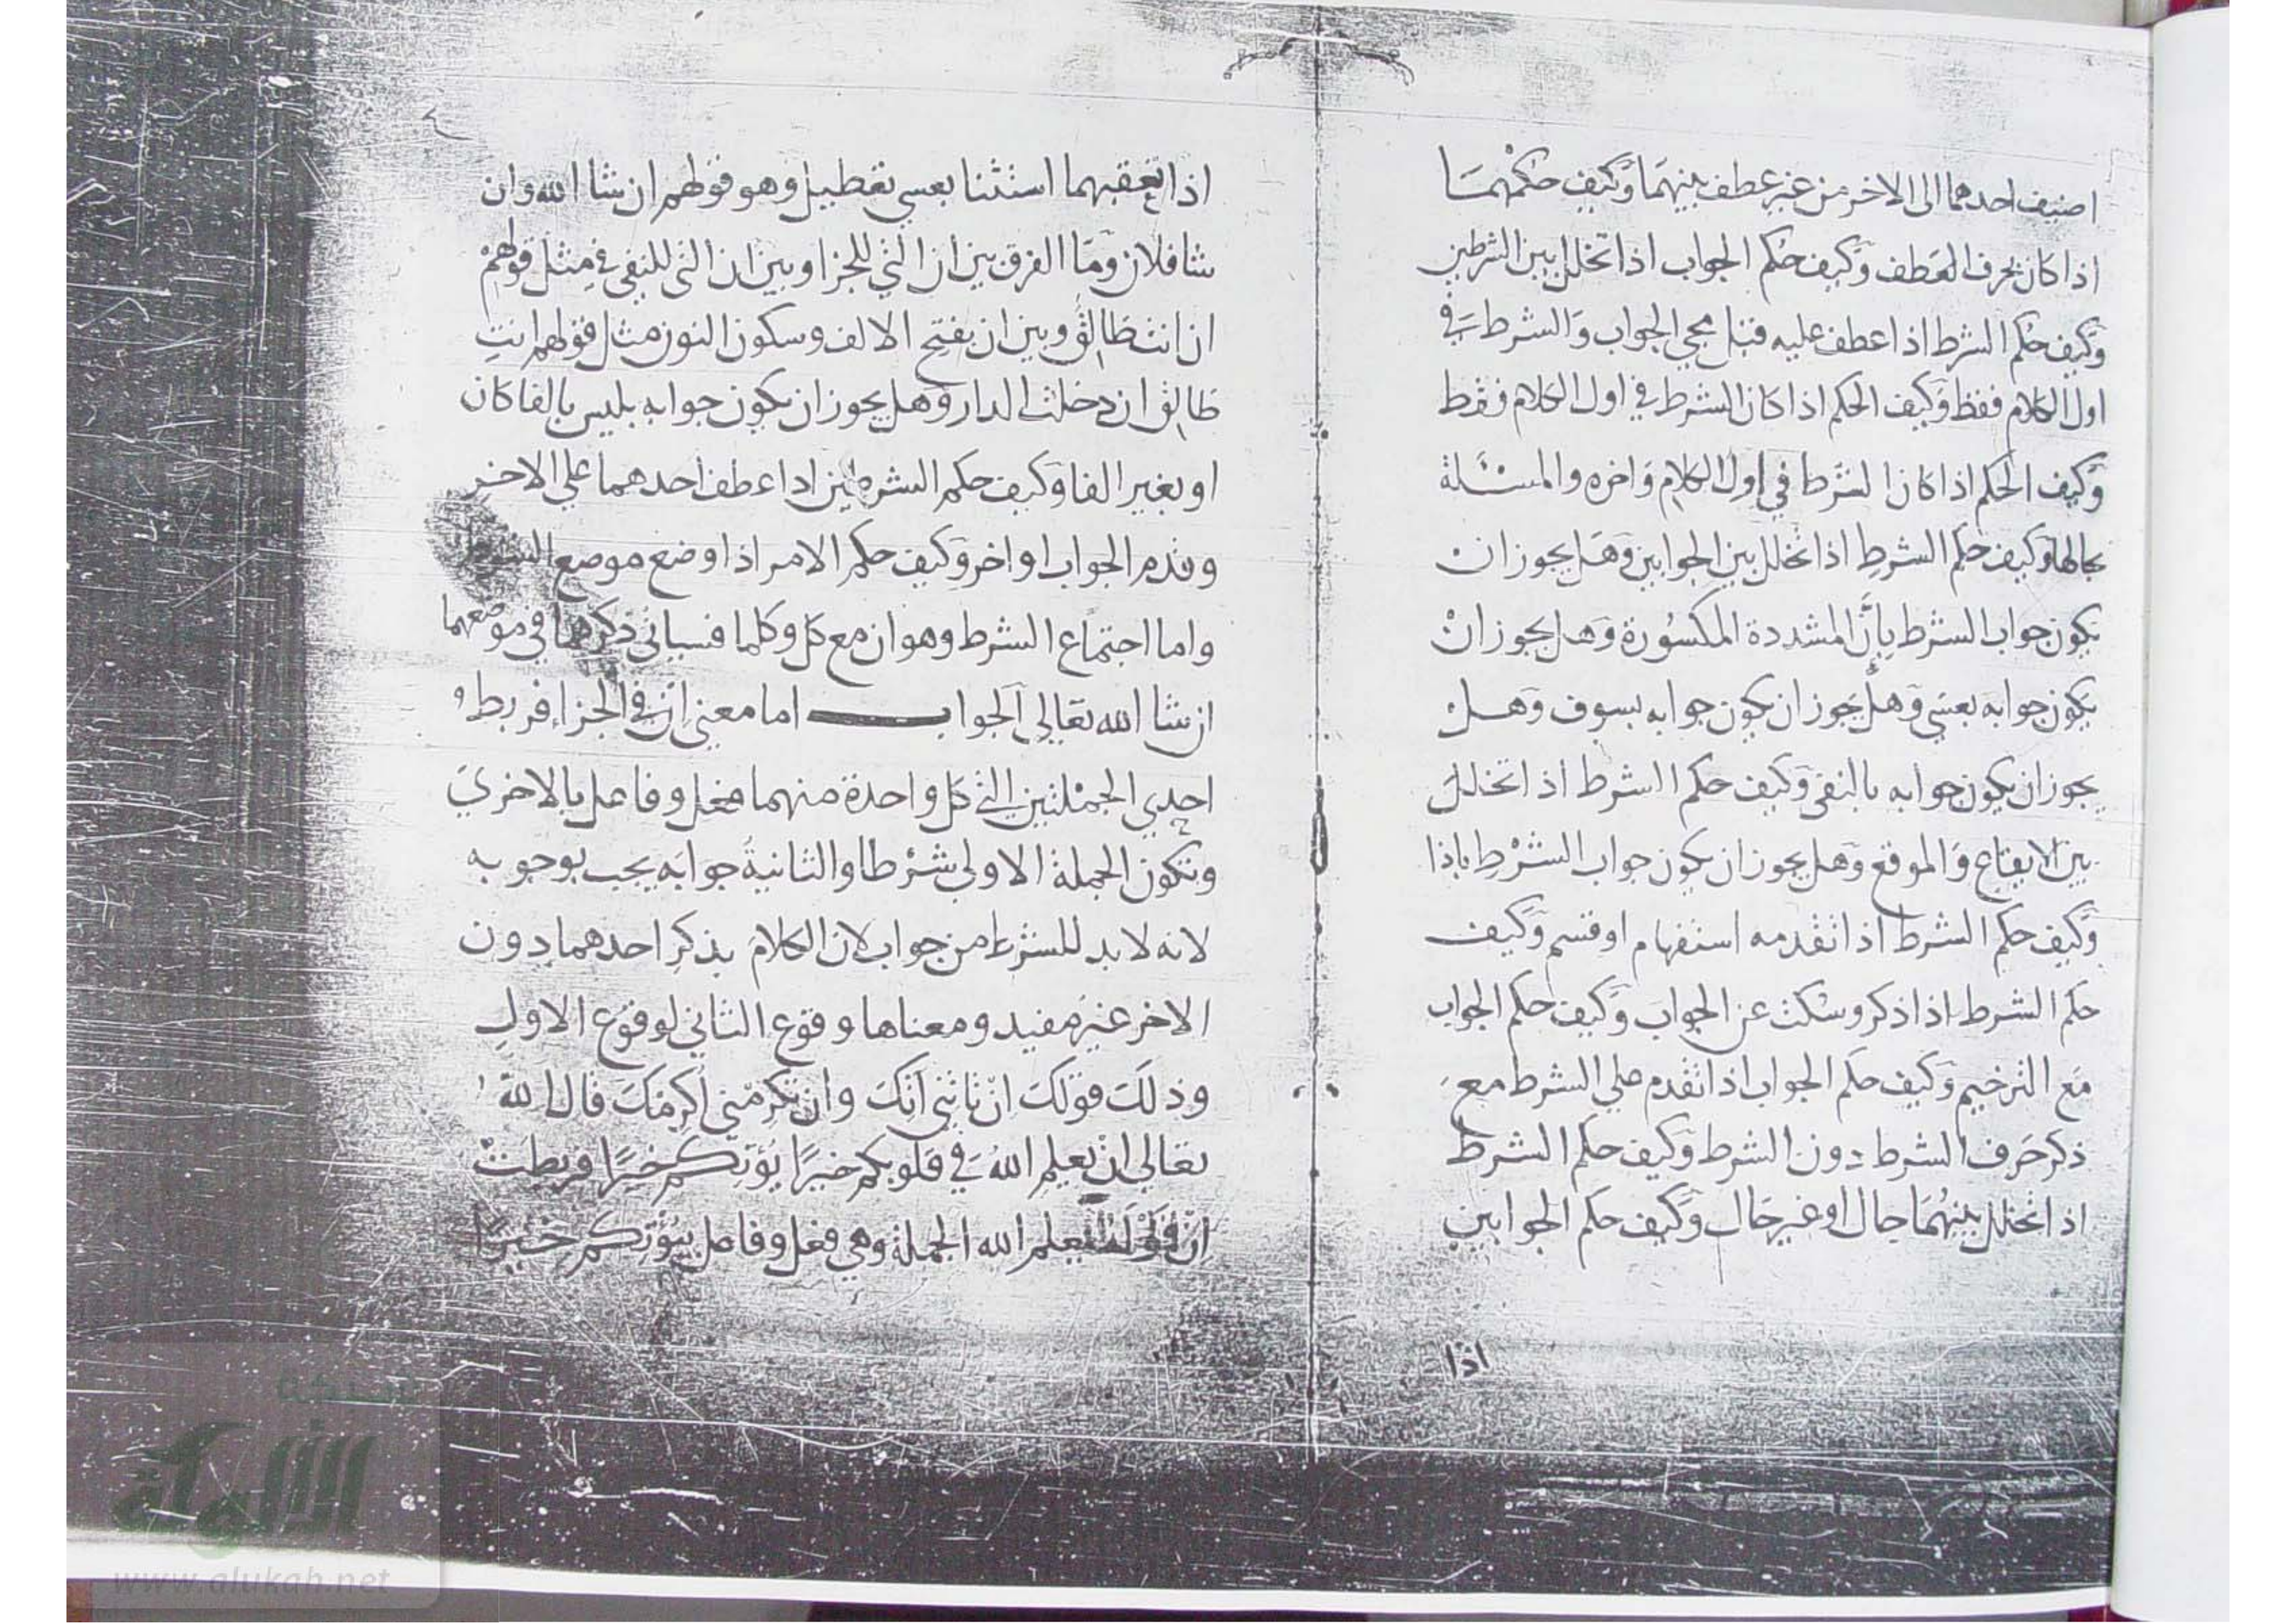 اضيف احدهما الى الاخر من غير عطف بينهما وكيف حكمهما
اذا كان بحرف العطف وكيف حكم الجواب اذا تخلل بين الشرطين
وكيف حكم الشرط اذا عطف عليه قبل مجي الجواب والشرط في
اول الكلام فقط وكيف الحكم اذا كان الشرط في اول الكلام فقط
وكيف الحكم اذا كان الشرط في اول الكلام واخره والمسئلة
بحالها وكيف حكم الشرط اذا تخلل بين الجوابين وهل يجوز ان
يكون جواب الشرط بانّ المشددة المكسورة وهل يجوز ان
يكون جوابه بعسى وهل يجوز ان يكون جوابه بسوف وهل
يجوز ان يكون جوابه بالنفي وكيف حكم الشرط اذا تخلل
بين الايقاع والموقع وهل يجوز ان يكون جواب الشرط باذا
وكيف حكم الشرط اذا تقدمه استفهام او قسم وكيف
حكم الشرط اذا ذكر وسكت عن الجواب وكيف حكم الجواب
مع الترخيم وكيف حكم الجواب اذا تقدم على الشرط مع
ذكر حرف الشرط دون الشرط وكيف حكم الشرط
اذا تخلل بينهما حال او غير حال وكيف حكم الجوابين
اذا
اذا تعقبهما استثنا بعسى تعطيل وهو قولهم ان شا الله وان
شا فلان وما الفرق بين ان التي للجزا وبين ان التي للنفي في مثل قولهم
ان انت طالق وبين ان بفتح الالف وسكون النون مثل قولهم انتِ
طالق ان دخلت الدار وهل يجوز ان يكون جوابه بليس بالفا كان
او بغير الفا وكيف حكم الشرطين اذا عطف احدهما علي الاخر
وقدم الجواب او اخر وكيف حكم الامر اذا وضع موضع الشرط
واما اجتماع الشرط وهو ان مع كل وكلما فسياتي ذكرهما في موضعهما
ان شا الله تعالي الجواب اما معنى ان في الجزاء فربط
احدي الجملتين التي كل واحدة منهما فعل وفاعل بالاخري
وتكون الجملة الاولى شرطا والثانية جوابه يجب بوجوبه
لانه لا بد للشرط من جواب لان الكلام بذكر احدهما دون
الاخر غير مفيد ومعناها وقوع الثاني لوقوع الاول
وذلك قولك ان تاتني اتك وان تكرمني اكرمك قال الله
تعالي ان يعلم الله في قلوبكم خيرًا يؤتكم خيرًا فربطت
انْ يعلم الله الجملة وهي فعل وفاعل بيؤتكم خيرًا
الألوكة
www.alukah.net